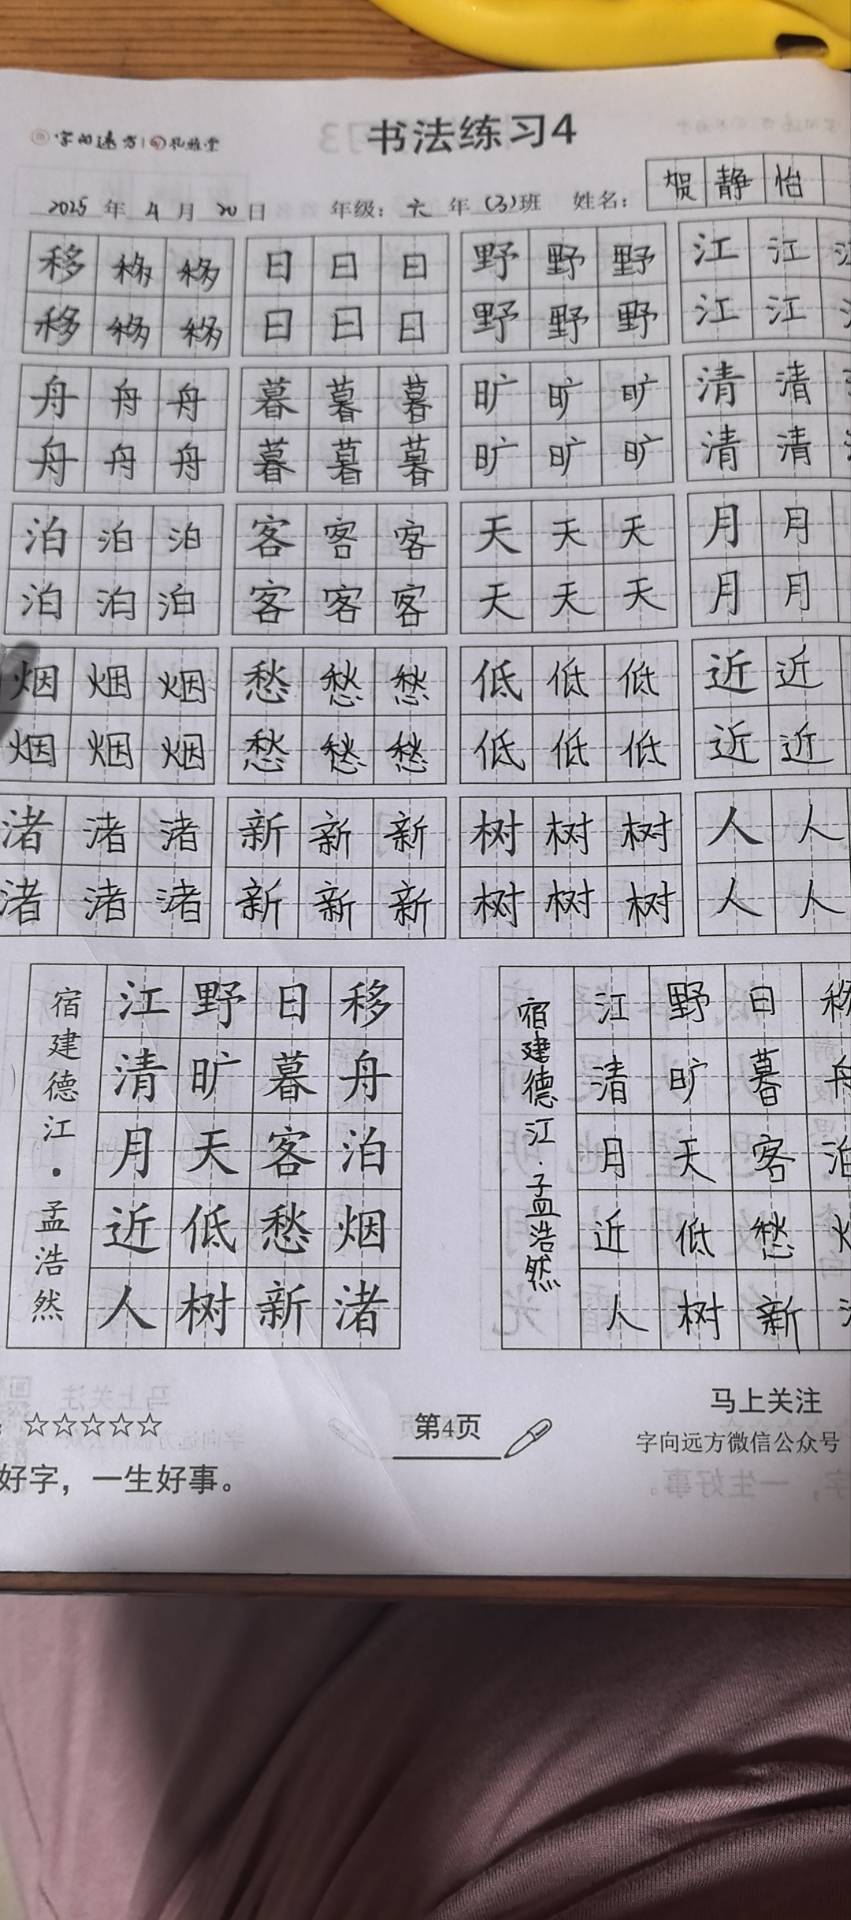 字向远方 孔雅堂
书法练习4
2025年4月20日 年级：六年(3)班 姓名：贺静怡
移移移 日日日 野野野 江江
移移移 日日日 野野野 江江
舟舟舟 暮暮暮 旷旷旷 清清
舟舟舟 暮暮暮 旷旷旷 清清
泊泊泊 客客客 天天天 月月
泊泊泊 客客客 天天天 月月
烟烟烟 愁愁愁 低低低 近近
烟烟烟 愁愁愁 低低低 近近
渚渚渚 新新新 树树树 人人
渚渚渚 新新新 树树树 人人
移舟泊烟渚
日暮客愁新
野旷天低树
江清月近人
宿建德江·孟浩然
移舟泊
日暮客愁新
野旷天低树
江清月近人
宿建德江·孟浩然
☆☆☆☆☆
好字，一生好事。
第4页
马上关注
字向远方微信公众号